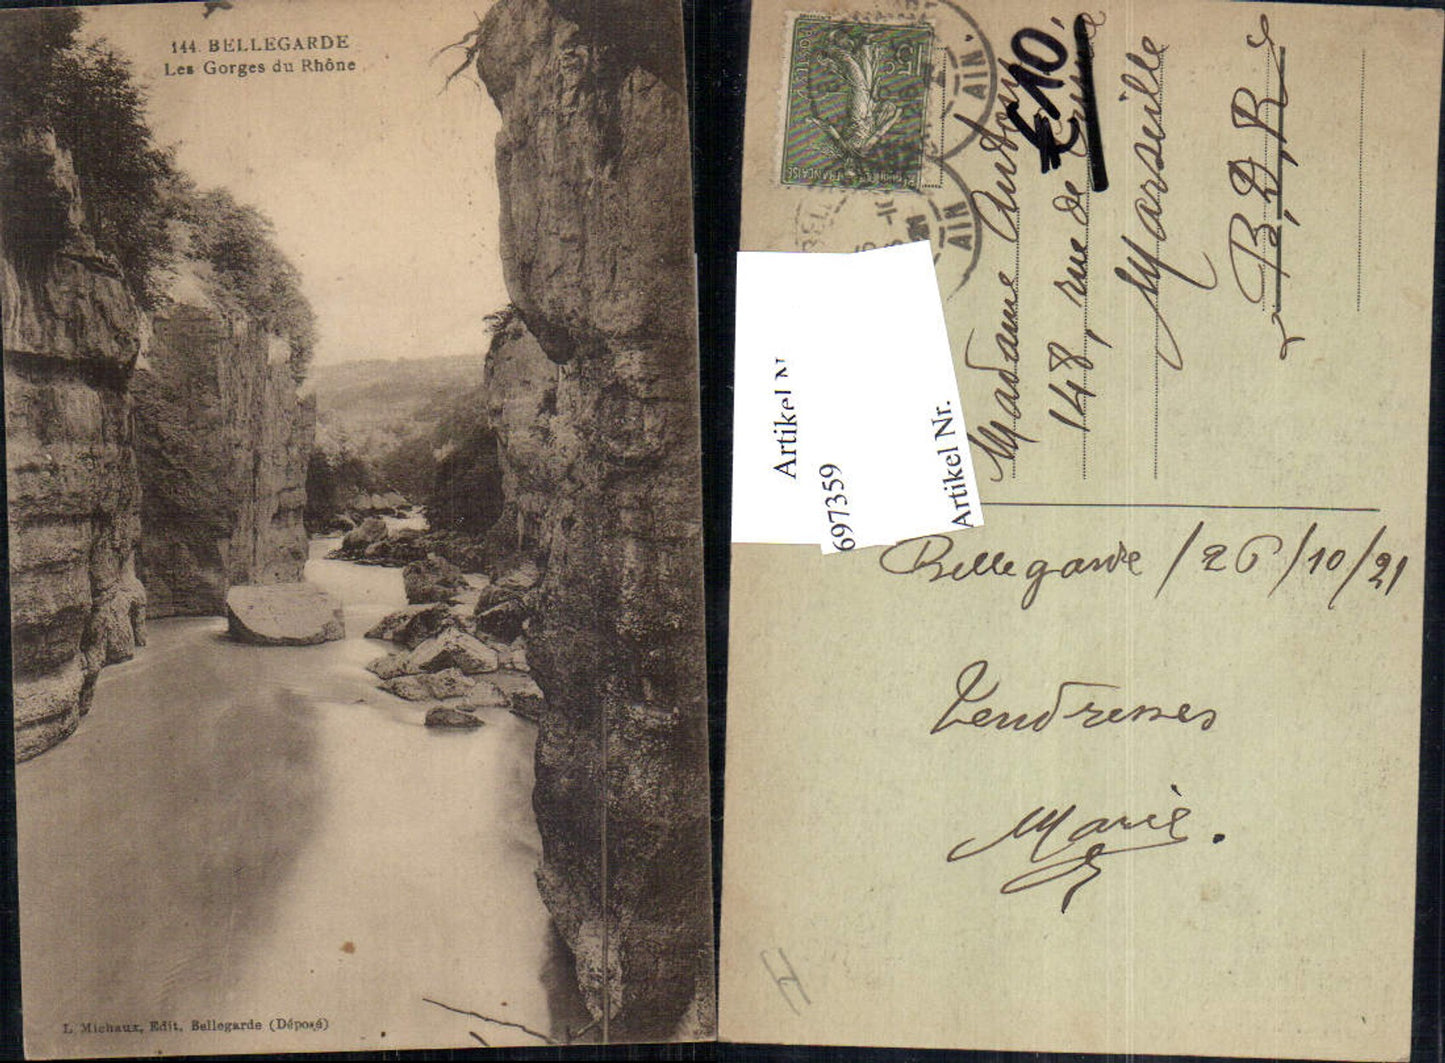 144. BELLEGARDE
Les Gorges du Rhône
L. Michaux, Edit. Bellegarde (Déposé)
15c
POSTES
FRANÇAISE
AIN
AIN
€10,
Madame
148, rue de
Marseille
B, D, R
Artikel N
697359
Artikel Nr.
Bellegarde / 26 / 10 / 21
Tendresses
Marie.